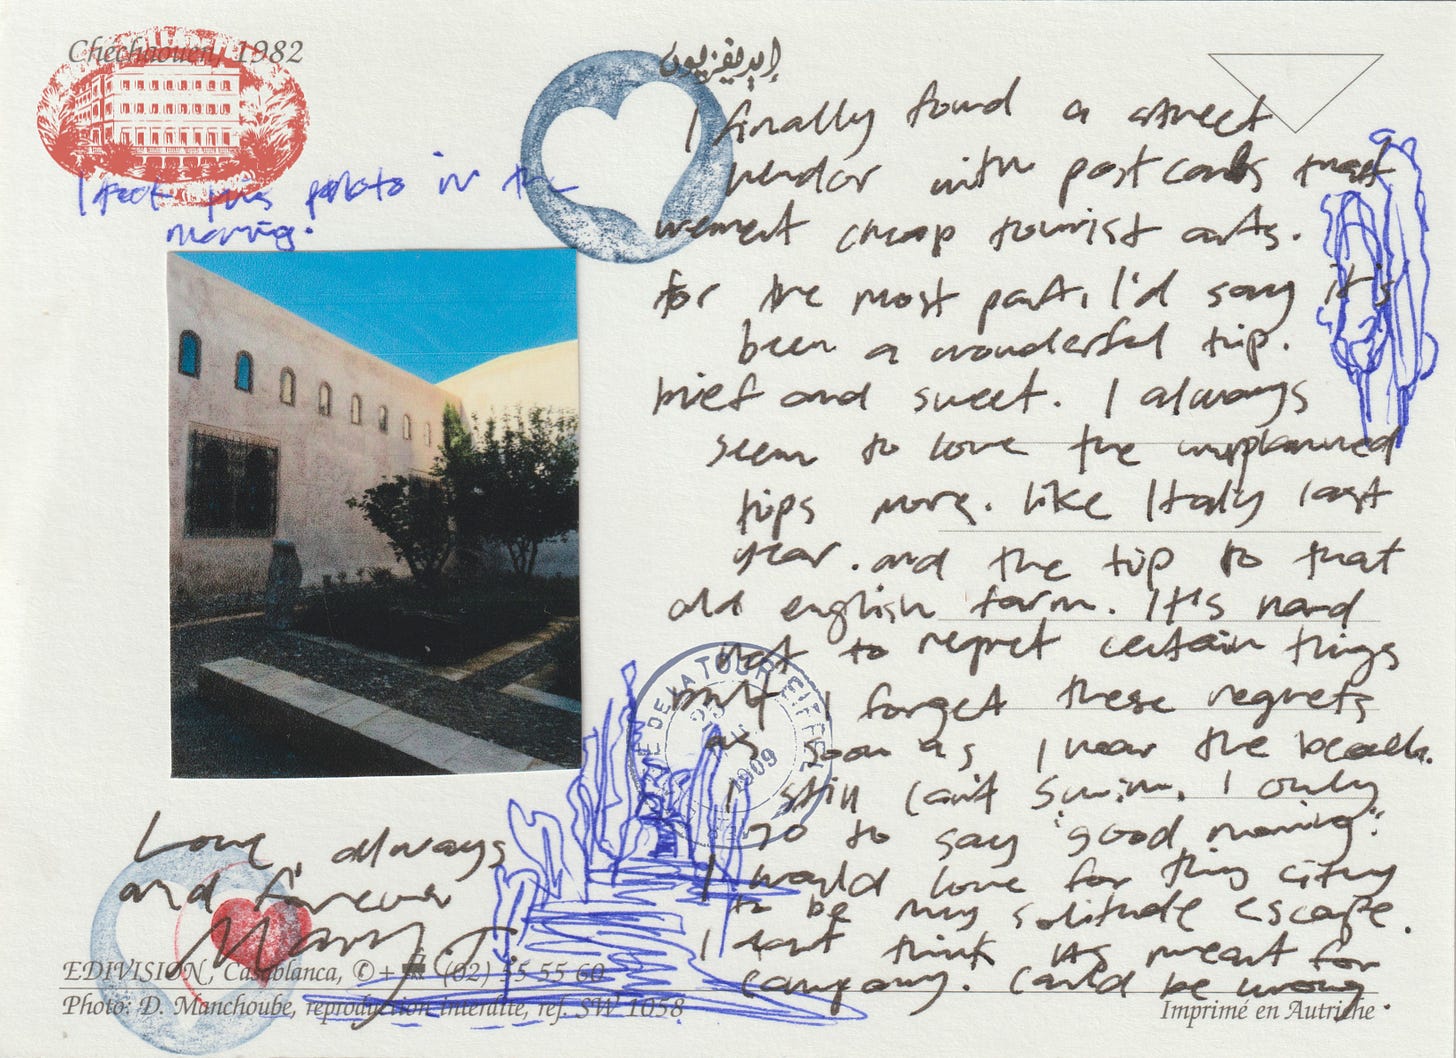 Chechaouen, 1982
إيديفزيون
I took this photo in the
morning.
I finally found a street
vendor with postcards that
weren't cheap tourist arts.
for the most part, I'd say it's
been a wonderful trip.
brief and sweet. I always
seem to love the unplanned
trips more. like Italy last
year. and the trip to that
old english farm. It's hard
not to regret certain things
but I forget these regrets
as soon as I near the beach.
I still can't swim. I only
go to say "good morning".
I would love for this city
to be my solitude escape.
I don't think its meant for
company. Could be wrong.
DE LA TOUR EIFFEL
1909
Love always
and forever
EDIVISION, Casablanca, ©+ (02) 55 55 60
Photo: D. Manchoube, reproduction interdite, ref. SW 1058
Imprimé en Autriche